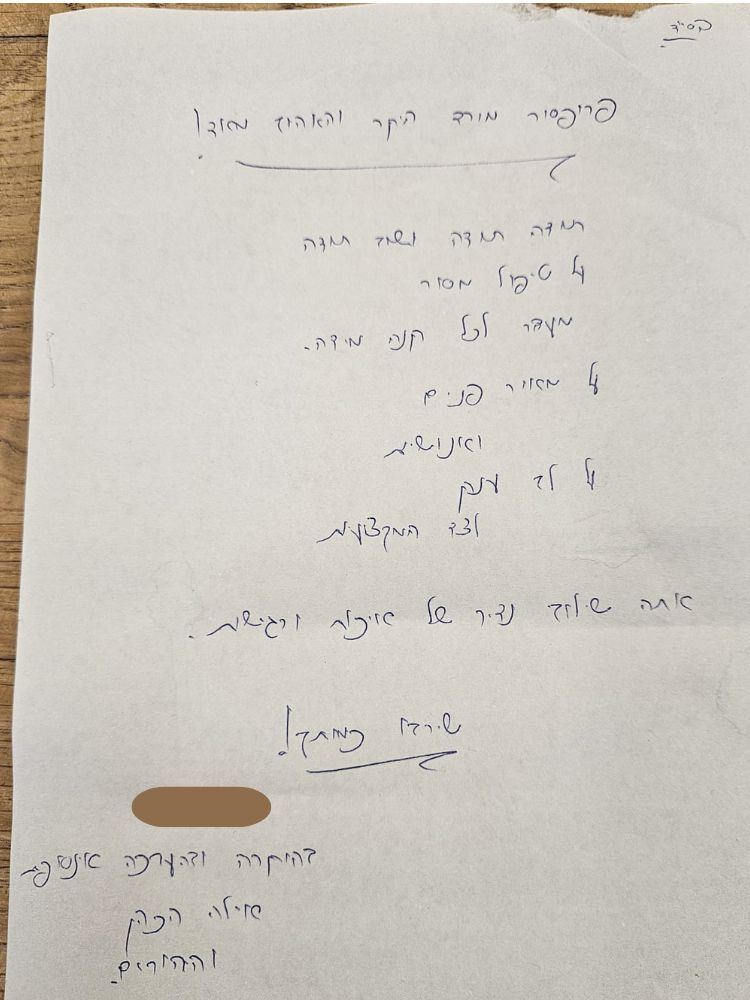 בס״ד
פרופסור מורד היקר והאהוב מאוד!
תודה תודה ושוב תודה
על טיפול מסור
מעבר לכל קנה מידה.
על מאור פנים
ואנושיות
על לב ענק
לצד המקצועיות
אתה שילוב נדיר של איכות ורגישות.
שירבו כמותך!
בהוקרה ובהערכה אינסופית
אילה הכהן
וההורים.